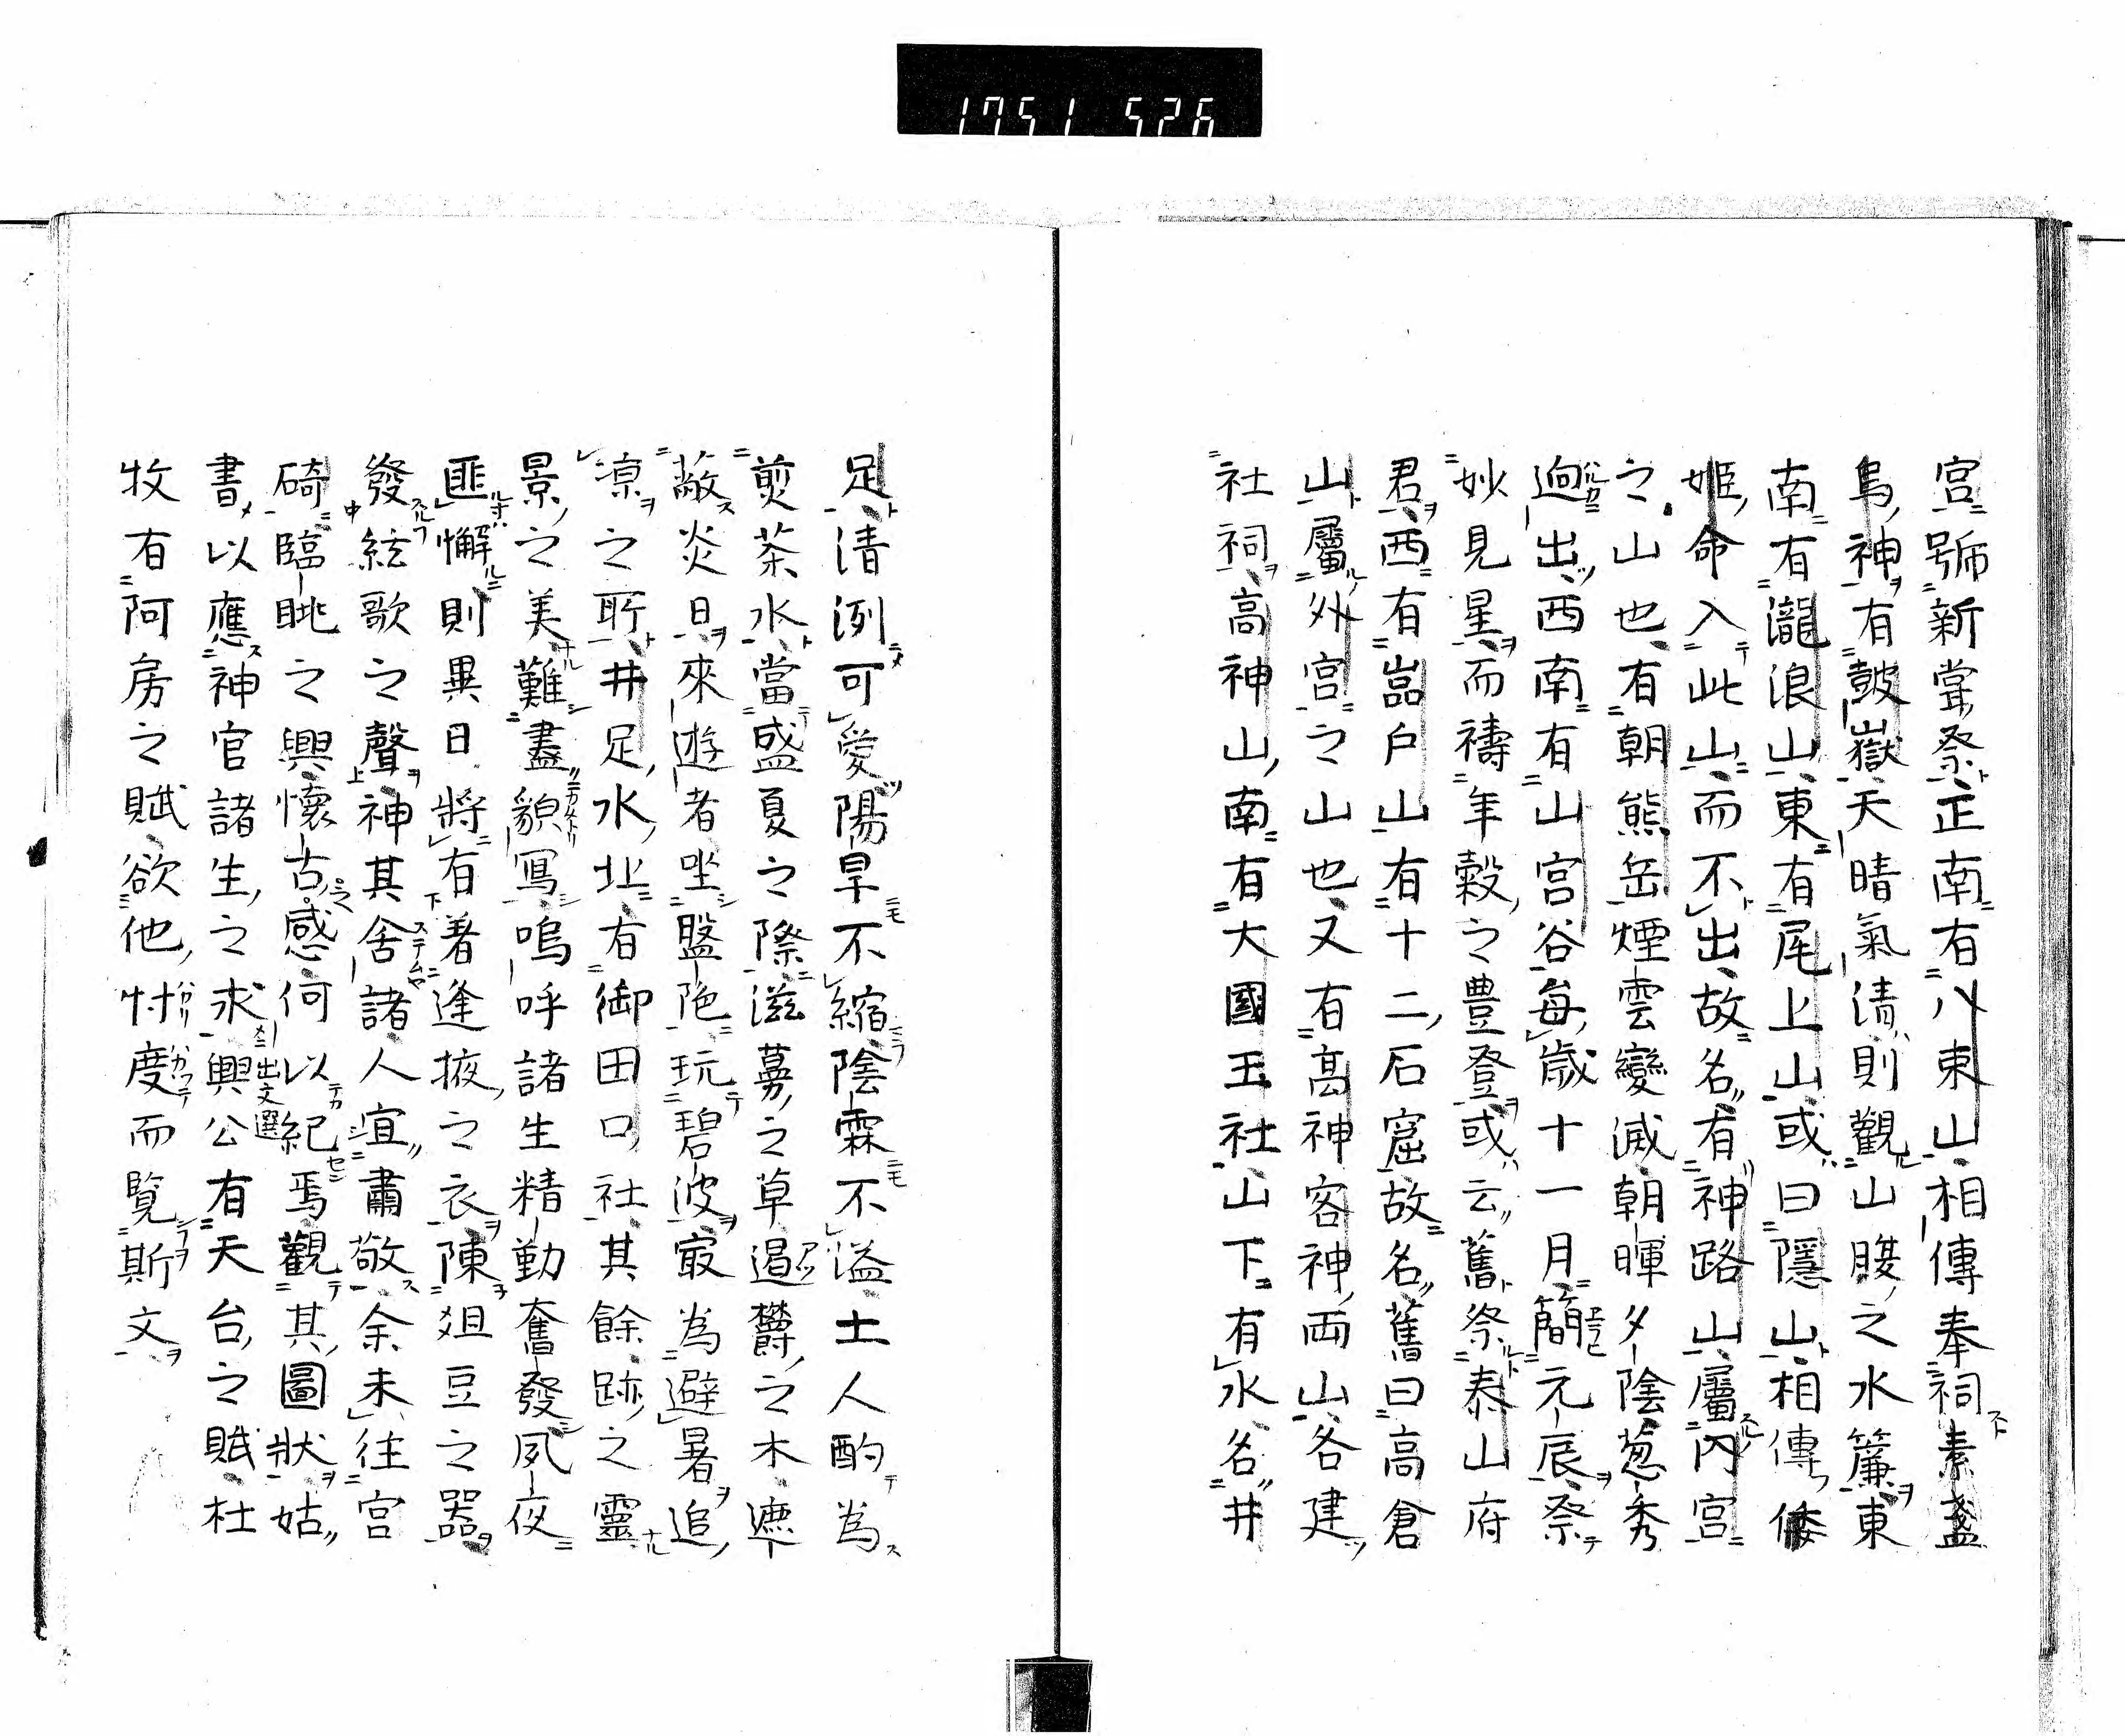 1751 526
宮號新嘗祭正南有八束山相傳奉祠素盞
烏神有皷嶽天晴氣清則觀山腰之水簾東
南有瀧浪山東有尾上山或曰隱山相傳倭
姫命入此山而不出故名有神路山屬内宮
之山也有朝熊岳煙雲變滅朝暉夕陰葱秀
逈出西南有山宮谷每歳十一月簡元辰祭
妙見星而禱年穀之豊登或云舊祭泰山府
君西有嵓戶山有十二石窟故名舊曰高倉
山屬外宮之山也又有高神客神両山各建
社祠高神山南有大國玉社山下有水名井
足清洌可愛陽旱不縮陰霖不溢土人酌為
煎茶水當盛夏之際滋蔓之草遏欝之木遮
蔽炎日來遊者坐盤陁玩碧波冣為避暑追
凉之所井足水北有御田口社其餘跡之靈
景之美難盡貌寫嗚呼諸生精勤奮發夙夜
匪懈則異日將有著逢掖之衣陳俎豆之器
發絃歌之聲神其舍諸人宜肅敬余未往宮
碕臨眺之興懷古感何以紀焉觀其圖狀姑
書以應神官諸生之求興公有天台之賦杜
出文選
牧有阿房之賦欲他忖度而覧斯文